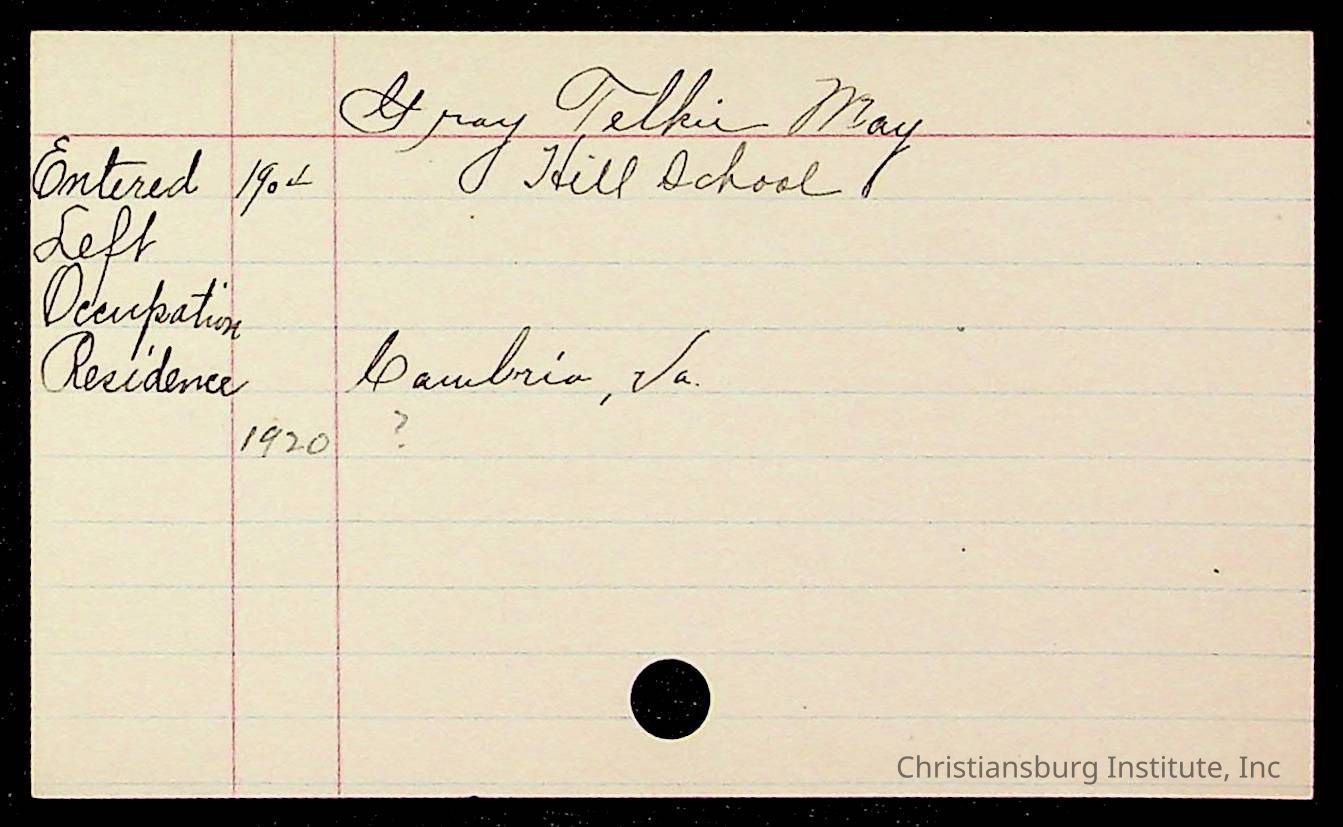 Gray Telkie May
Entered 1904 Hill School
Left
Occupation
Residence Cambria, Va.
1920 ?
Christiansburg Institute, Inc